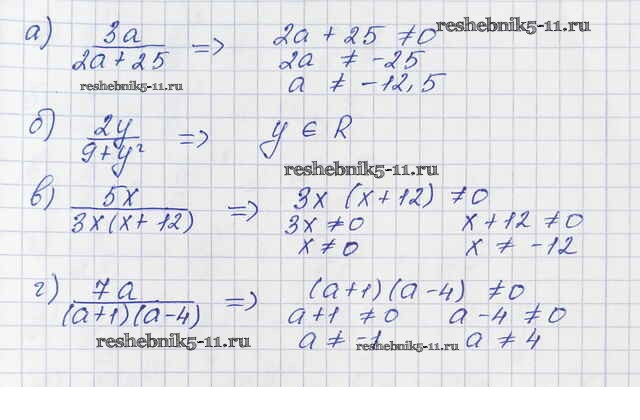 а) 3a / 2a + 25 => 2a + 25 ≠ 0 reshebnik5-11.ru
2a ≠ -25
reshebnik5-11.ru a ≠ -12,5
б) 2y / 9 + y² => y ∈ R
reshebnik5-11.ru
в) 5x / 3x(x + 12) => 3x (x + 12) ≠ 0
3x ≠ 0 x + 12 ≠ 0
x ≠ 0 x ≠ -12
г) 7a / (a+1)(a-4) => (a+1)(a-4) ≠ 0
a+1 ≠ 0 a-4 ≠ 0
reshebnik5-11.ru a ≠ -1 reshebnik5-11.ru a ≠ 4